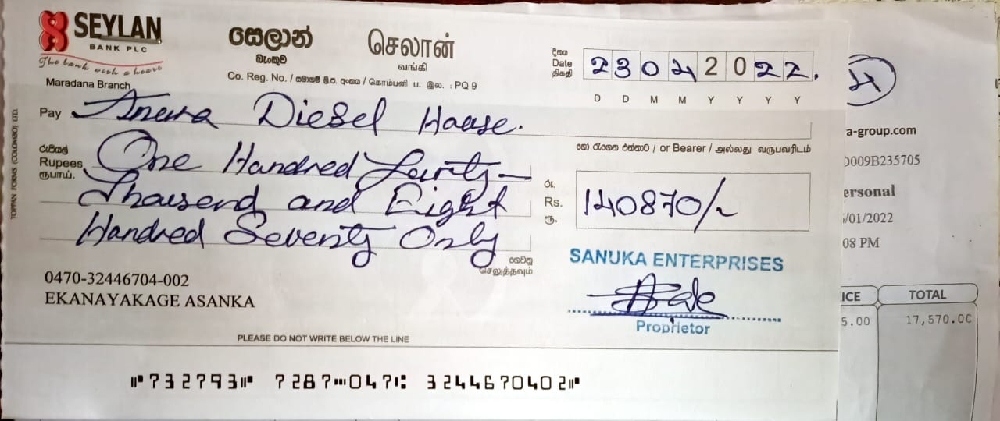 SEYLAN
BANK PLC
The bank with a heart
Maradana Branch
සෙලාන්
බැංකුව
செலான்
வங்கி
Co. Reg. No. / සමාගම් ලි.ප. අංකය / கொம்பனி ப. இல. : PQ 9
දිනය
Date
திகதி
23042022.
D D M M Y Y Y Y
Pay Anura Diesel House.
හෝ රැගෙන එන්නාට / or Bearer / அல்லது வருபவரிடம்
රුපියල්
Rupees
ரூபாய்.
One Hundred Fourty
Thousend and Eight
Hundred Seventy Only
රු.
Rs.
ரூ.
140870/~
ගෙවනු
செலுத்தவும்
SANUKA ENTERPRISES
Proprietor
0470-32446704-002
EKANAYAKAGE ASANKA
PLEASE DO NOT WRITE BELOW THE LINE
⑈732793⑈ 7287⑉047⑆ 3244670402⑈
TOPPAN FORMS (COLOMBO) LTD.
a-group.com
0009B235705
ersonal
/01/2022
08 PM
ICE TOTAL
5.00 17,570.00